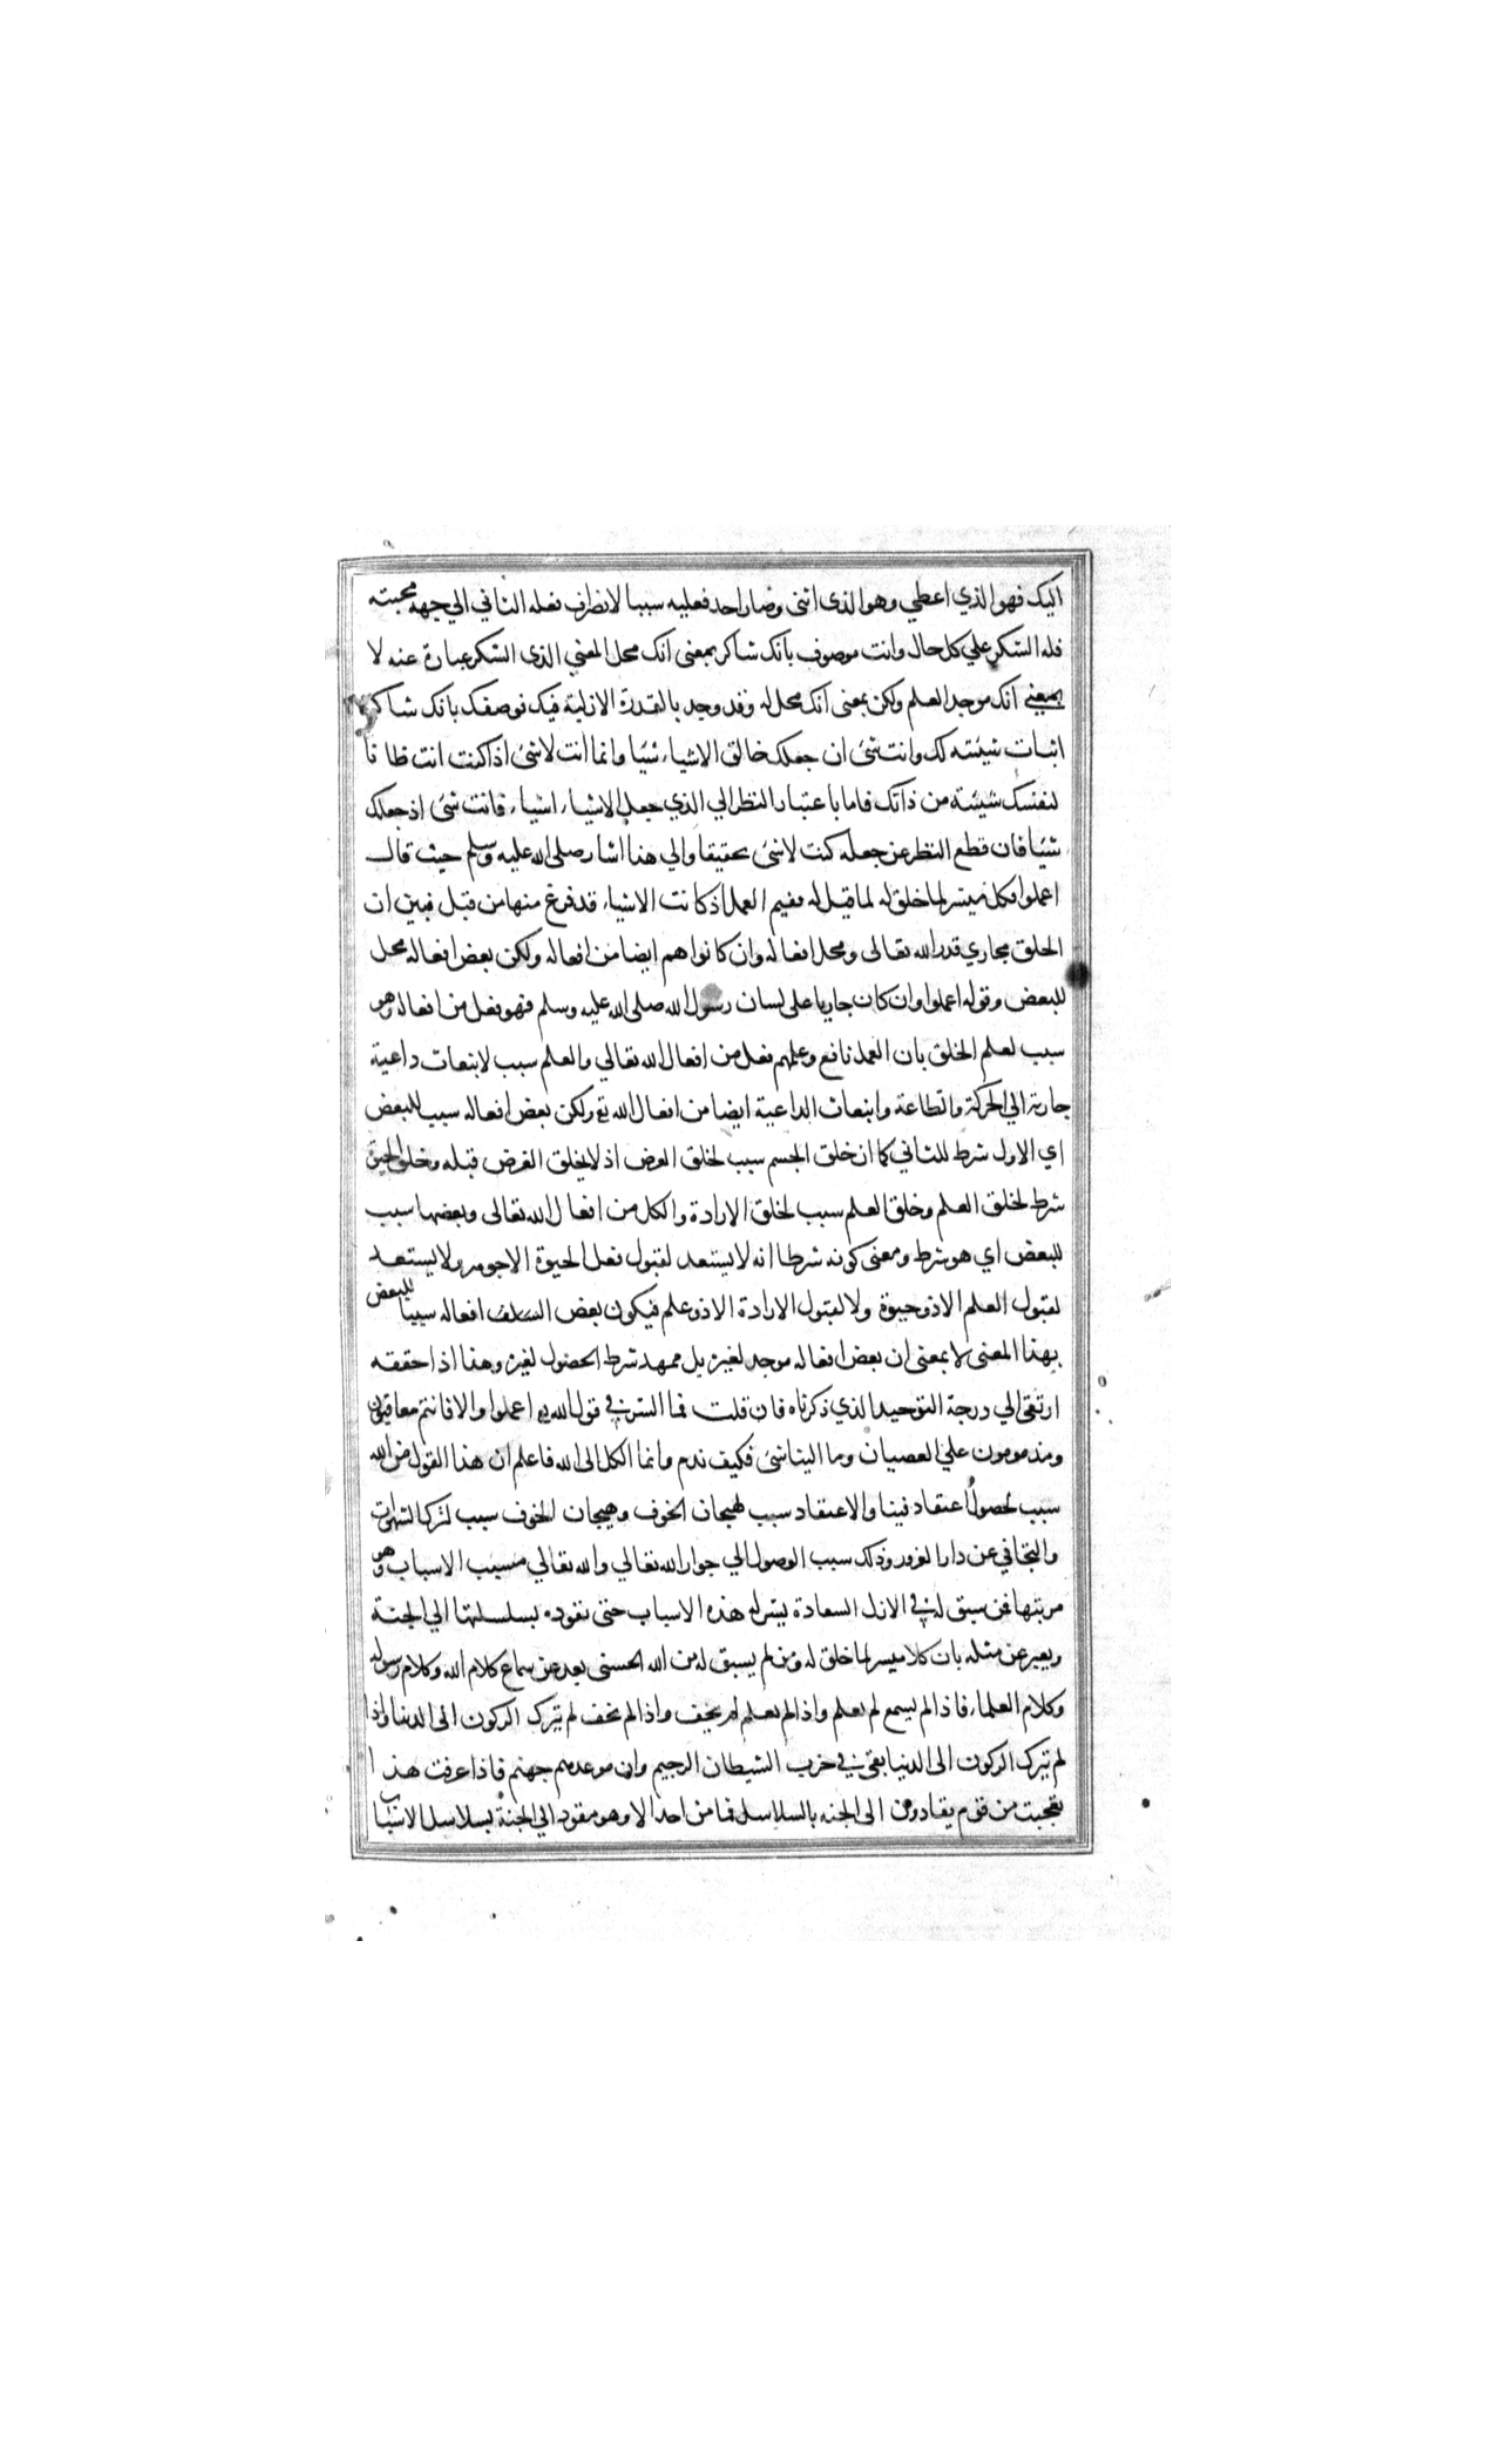 اليك فهو الذي اعطي وهو الذى اثنى وصار احد فعليه سببا لانصراف فعله الثاني الي جهة محبته
فله الشكر علي كل حال وانت موصوف بانك شاكر بمعنى انك محل المعني الذى الشكر عبارة عنه لا
بمعني انك موجد العلم ولكن بمعنى انك محل له وقد وجد بالقدرة الازلية فيك فوصفك بانك شاكر
اثبات شيئته لك وانت شئ ان جعلك خالق الاشياء شيا وانما انت لا شئ اذا كنت انت ظانا
لنفسك شيئة من ذاتك فاما باعتبار النظر الي الذي جعل الاشياء اشياء فانت شئ اذ جعلك
شيا فان قطع النظر عن جعله كنت لا شئ تحقيقا والي هذا اشار صلى الله عليه وسلم حيث قال
اعملوا فكل ميسر لما خلق له لما قيل له ففيم العمل اذ كانت الاشياء قد فرغ منها من قبل فبين ان
الخلق مجاري قدر الله تعالى ومحل افعاله وان كانوا هم ايضا من افعاله ولكن بعض افعاله محل
للبعض وقوله اعملوا وان كان جاريا على لسان رسول الله صلى الله عليه وسلم فهو فعل من افعاله وهو
سبب لعلم الخلق بان العمل نافع وعلمهم فعل من افعال الله تعالي والعلم سبب لانبعاث داعية
جازمة الي الحركة والطاعة وانبعاث الداعية ايضا من افعال الله تع ولكن بعض افعاله سبب للبعض
اي الاول شرط للثاني كما ان خلق الجسم سبب لخلق العرض اذ لا يخلق العرض قبله وخلق الحيوة
شرط لخلق العلم وخلق العلم سبب لخلق الارادة والكل من افعال الله تعالى وبعضها سبب
للبعض اي هو شرط ومعنى كونه شرطا انه لا يستعد لقبول فعل الحيوة الا جوهر ولا يستعد
لقبول العلم الا ذو حيوة ولا لقبول الارادة الا ذو علم فيكون بعض افعاله سببا للبعض
بهذا المعنى لا بمعنى ان بعض افعاله موجد لغيره بل ممهد شرط الحصول لغيره وهذا اذا حققه
ارتقى الي درجة التوحيد الذي ذكرناه فان قلت فما السر في قول الله تع اعملوا والا فانتم معاقبون
ومذمومون علي العصيان وما الينا شئ فكيف ندم وانما الكل الى الله فاعلم ان هذا القول من الله
سبب لحصول اعتقاد فينا والاعتقاد سبب لهيجان الخوف وهيجان الخوف سبب لترك الشهوات
والتجافي عن دار الغرور وذلك سبب الوصول الي جوار الله تعالي والله تعالي مسبب الاسباب وهو
مرتبها فمن سبق له في الازل السعادة يسر له هذه الاسباب حتى تقوده بسلسلتها الي الجنة
ويعبر عن مثله بان كلا ميسر لما خلق له ومن لم يسبق له من الله الحسنى بعد عن سماع كلام الله وكلام رسوله
وكلام العلماء فاذا لم يسمع لم يعلم واذا لم يعلم لم يخف واذا لم يخف لم يترك الركون الى الدنيا واذا
لم يترك الركون الى الدنيا بقى في حزب الشيطان الرجيم وان موعدهم جهنم فاذا عرفت هذا
تعجبت من قوم يقادون الى الجنه بالسلاسل فما من احد الا وهو مقود الي الجنة بسلاسل الاسباب